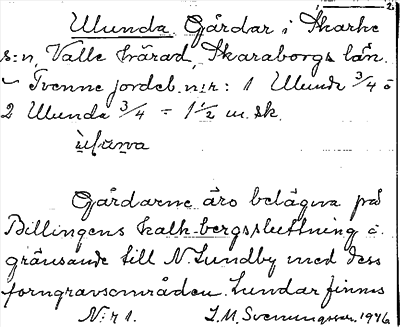 Ulunda. Gårdar i Skarke
s:n, Valle härad, Skaraborgs län.
– Tvenne jordeb. n:r: 1 Ulunda 3/4 o
2 Ulunda 3/4 = 1 1/2 m.sk.
Gårdarne äro belägna på
Billingens kalkbergssluttning o.
gränsande till N. Lundby med dess
forngravsområden. Lundar finnes
N:r 1. J. M. Svenungsson. 1946